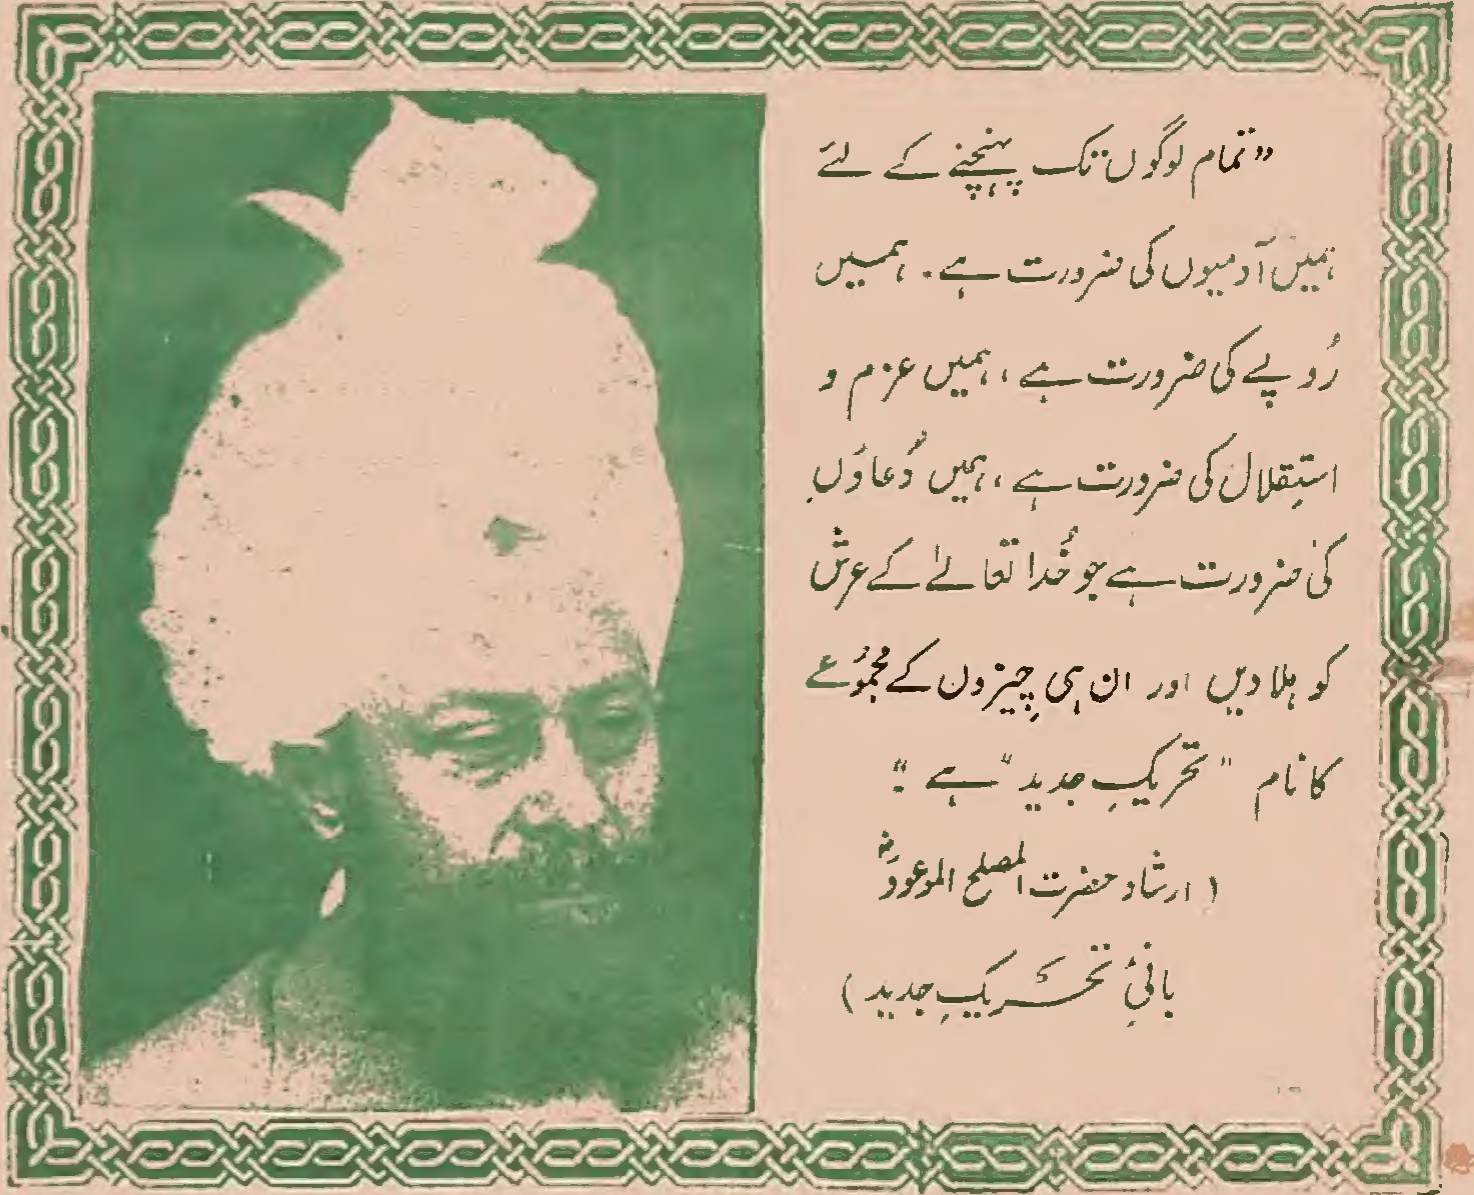 "تمام لوگوں تک پہنچنے کے لئے
ہمیں آدمیوں کی ضرورت ہے۔ ہمیں
رُوپے کی ضرورت ہے، ہمیں عزم و
استقلال کی ضرورت ہے، ہمیں دُعاؤں
کی ضرورت ہے جو خُدا تعالےٰ کے عرش
کو ہلا دیں اور ان ہی چیزوں کے مجموُعے
کا نام "تحریکِ جدید" ہے"
(ارشاد حضرت المصلح الموعودؓ
بانیِٔ تحریکِ جدید)